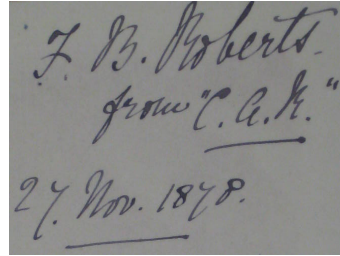 F. B. Roberts.
from "C. A. R."
27. Nov. 1878.